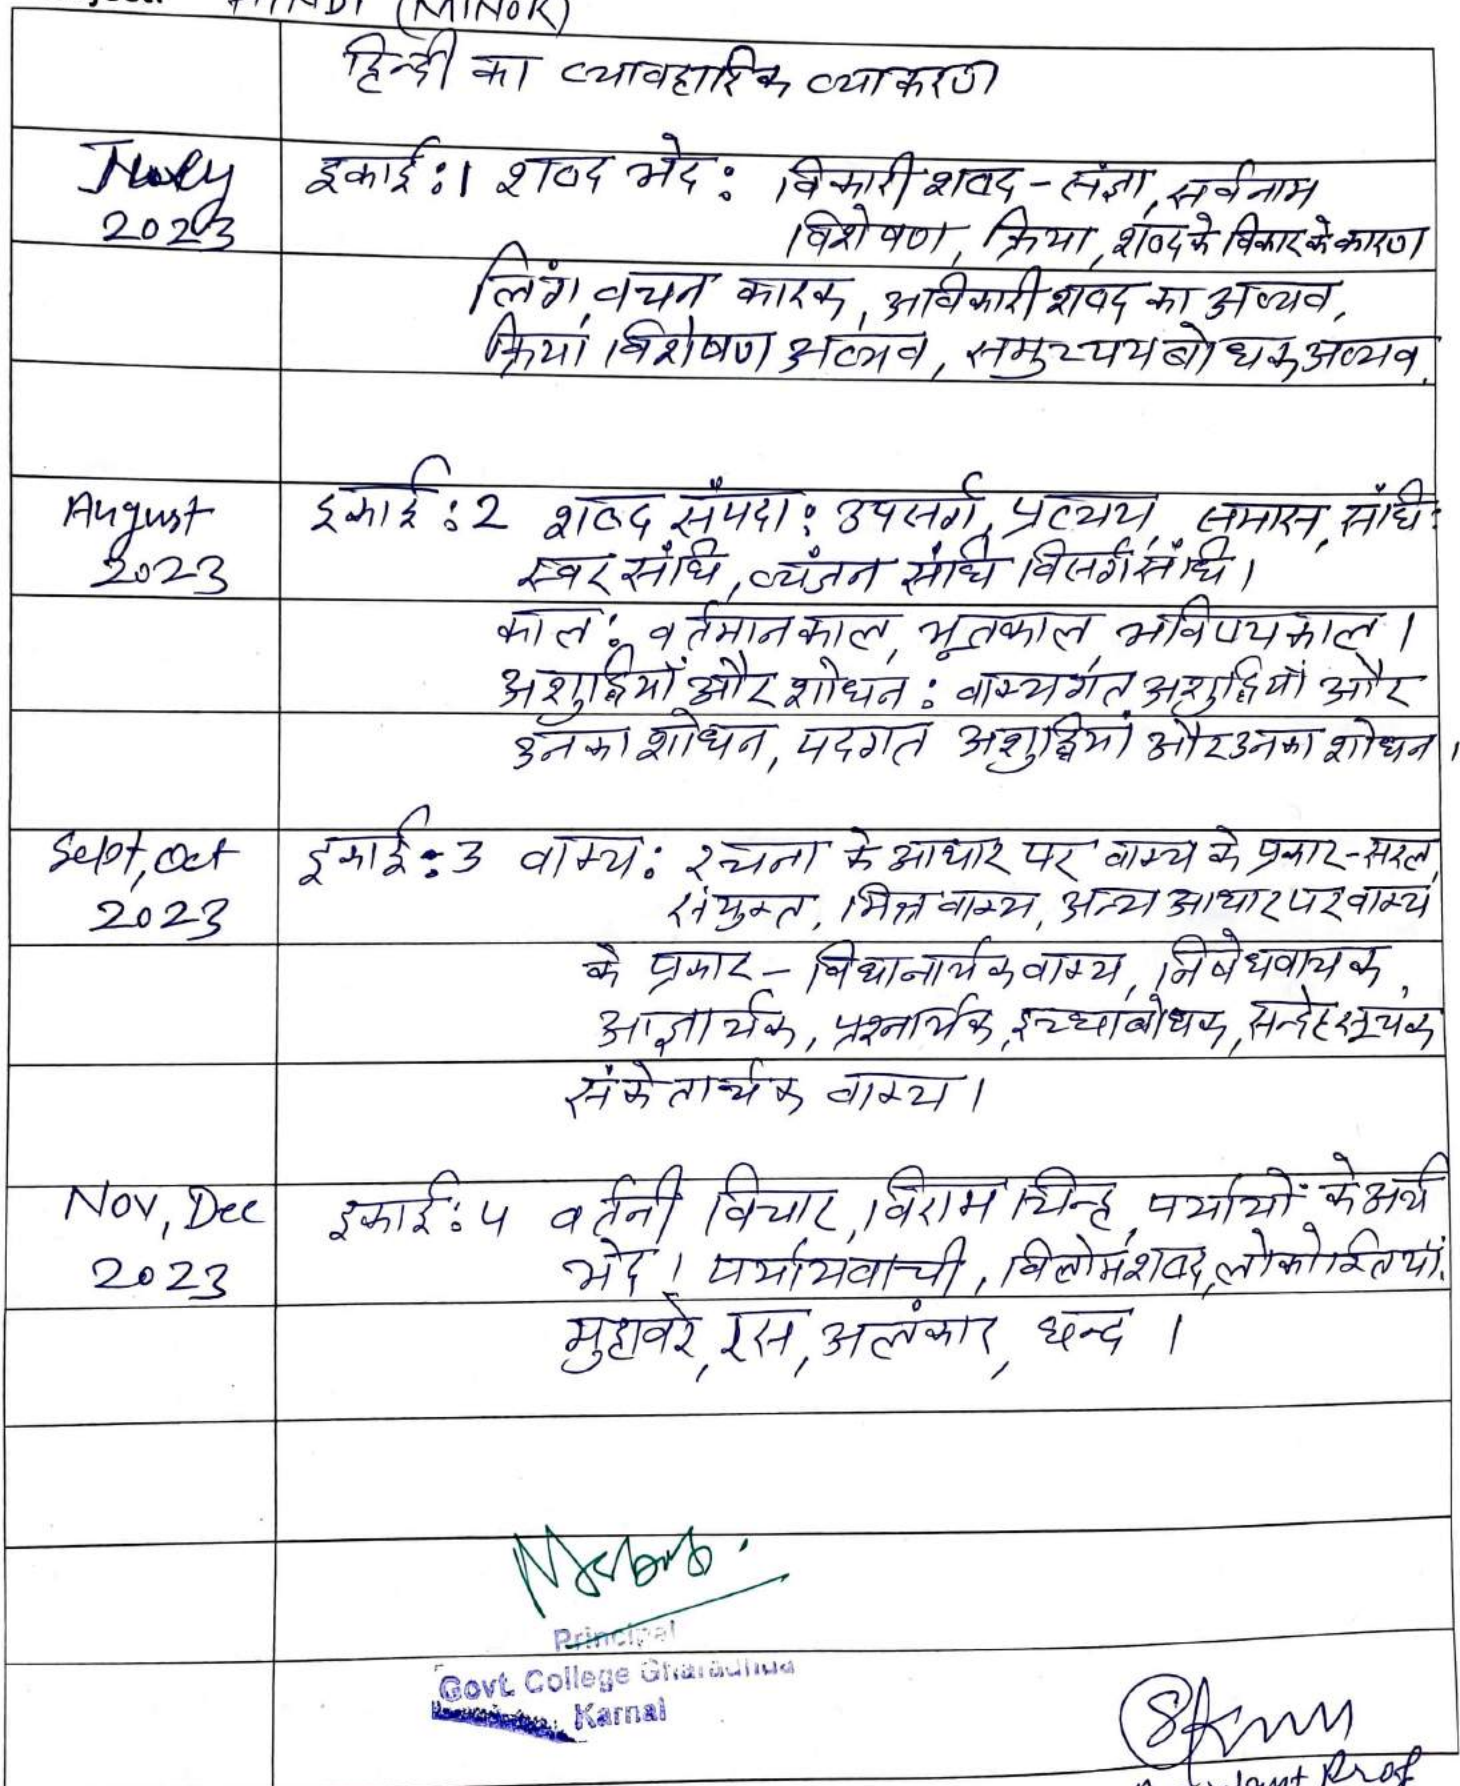 HINDI (MINOR)
हिन्दी का व्यावहारिक व्याकरण
July 2023
इकाई:1 शब्द भेद: विकारी शब्द - संज्ञा, सर्वनाम
विशेषण, क्रिया, शब्द के विकार के कारण
लिंग, वचन कारक, अविकारी शब्द का अव्यव,
क्रिया विशेषण अव्यव, समुच्चय बोधक अव्यव.
August 2023
इकाई:2 शब्द संपदा: उपसर्ग, प्रत्यय, समास, संधि:
स्वर संधि, व्यंजन संधि विसर्ग संधि।
काल: वर्तमान काल, भूतकाल, भविष्य काल।
अशुद्धियाँ और शोधन: वाक्यगत अशुद्धियां और
उनका शोधन, पदगत अशुद्धियां और उनका शोधन।
Sept, Oct 2023
इकाई:3 वाक्य: रचना के आधार पर वाक्य के प्रकार - सरल,
संयुक्त, मिश्र वाक्य, अन्य आधार पर वाक्य
के प्रकार - विधानार्थक वाक्य, निषेधवाचक,
आज्ञार्थक, प्रश्नार्थक, इच्छाबोधक, सन्देहसूचक
संकेतार्थक वाक्य।
Nov, Dec 2023
इकाई:4 वर्तनी विचार, विराम चिन्ह, पर्यायों के अर्थ
भेद। पर्यायवाची, विलोम शब्द, लोकोक्तियाँ.
मुहावरे, रस, अलंकार, छन्द।
Principal
Govt. College Gharaunda
Karnal
Prof